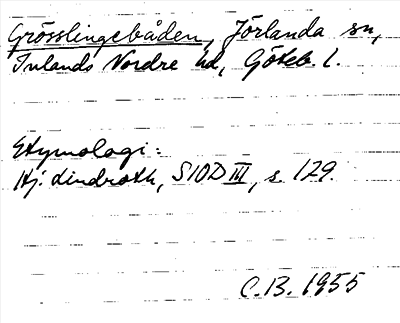 Grösslingebåden, Jörlanda sn,
Inlands Nordre hd, Göteb. l.
Etymologi:
Hj. Lindroth, SIOD III, s. 129.
C.B. 1955